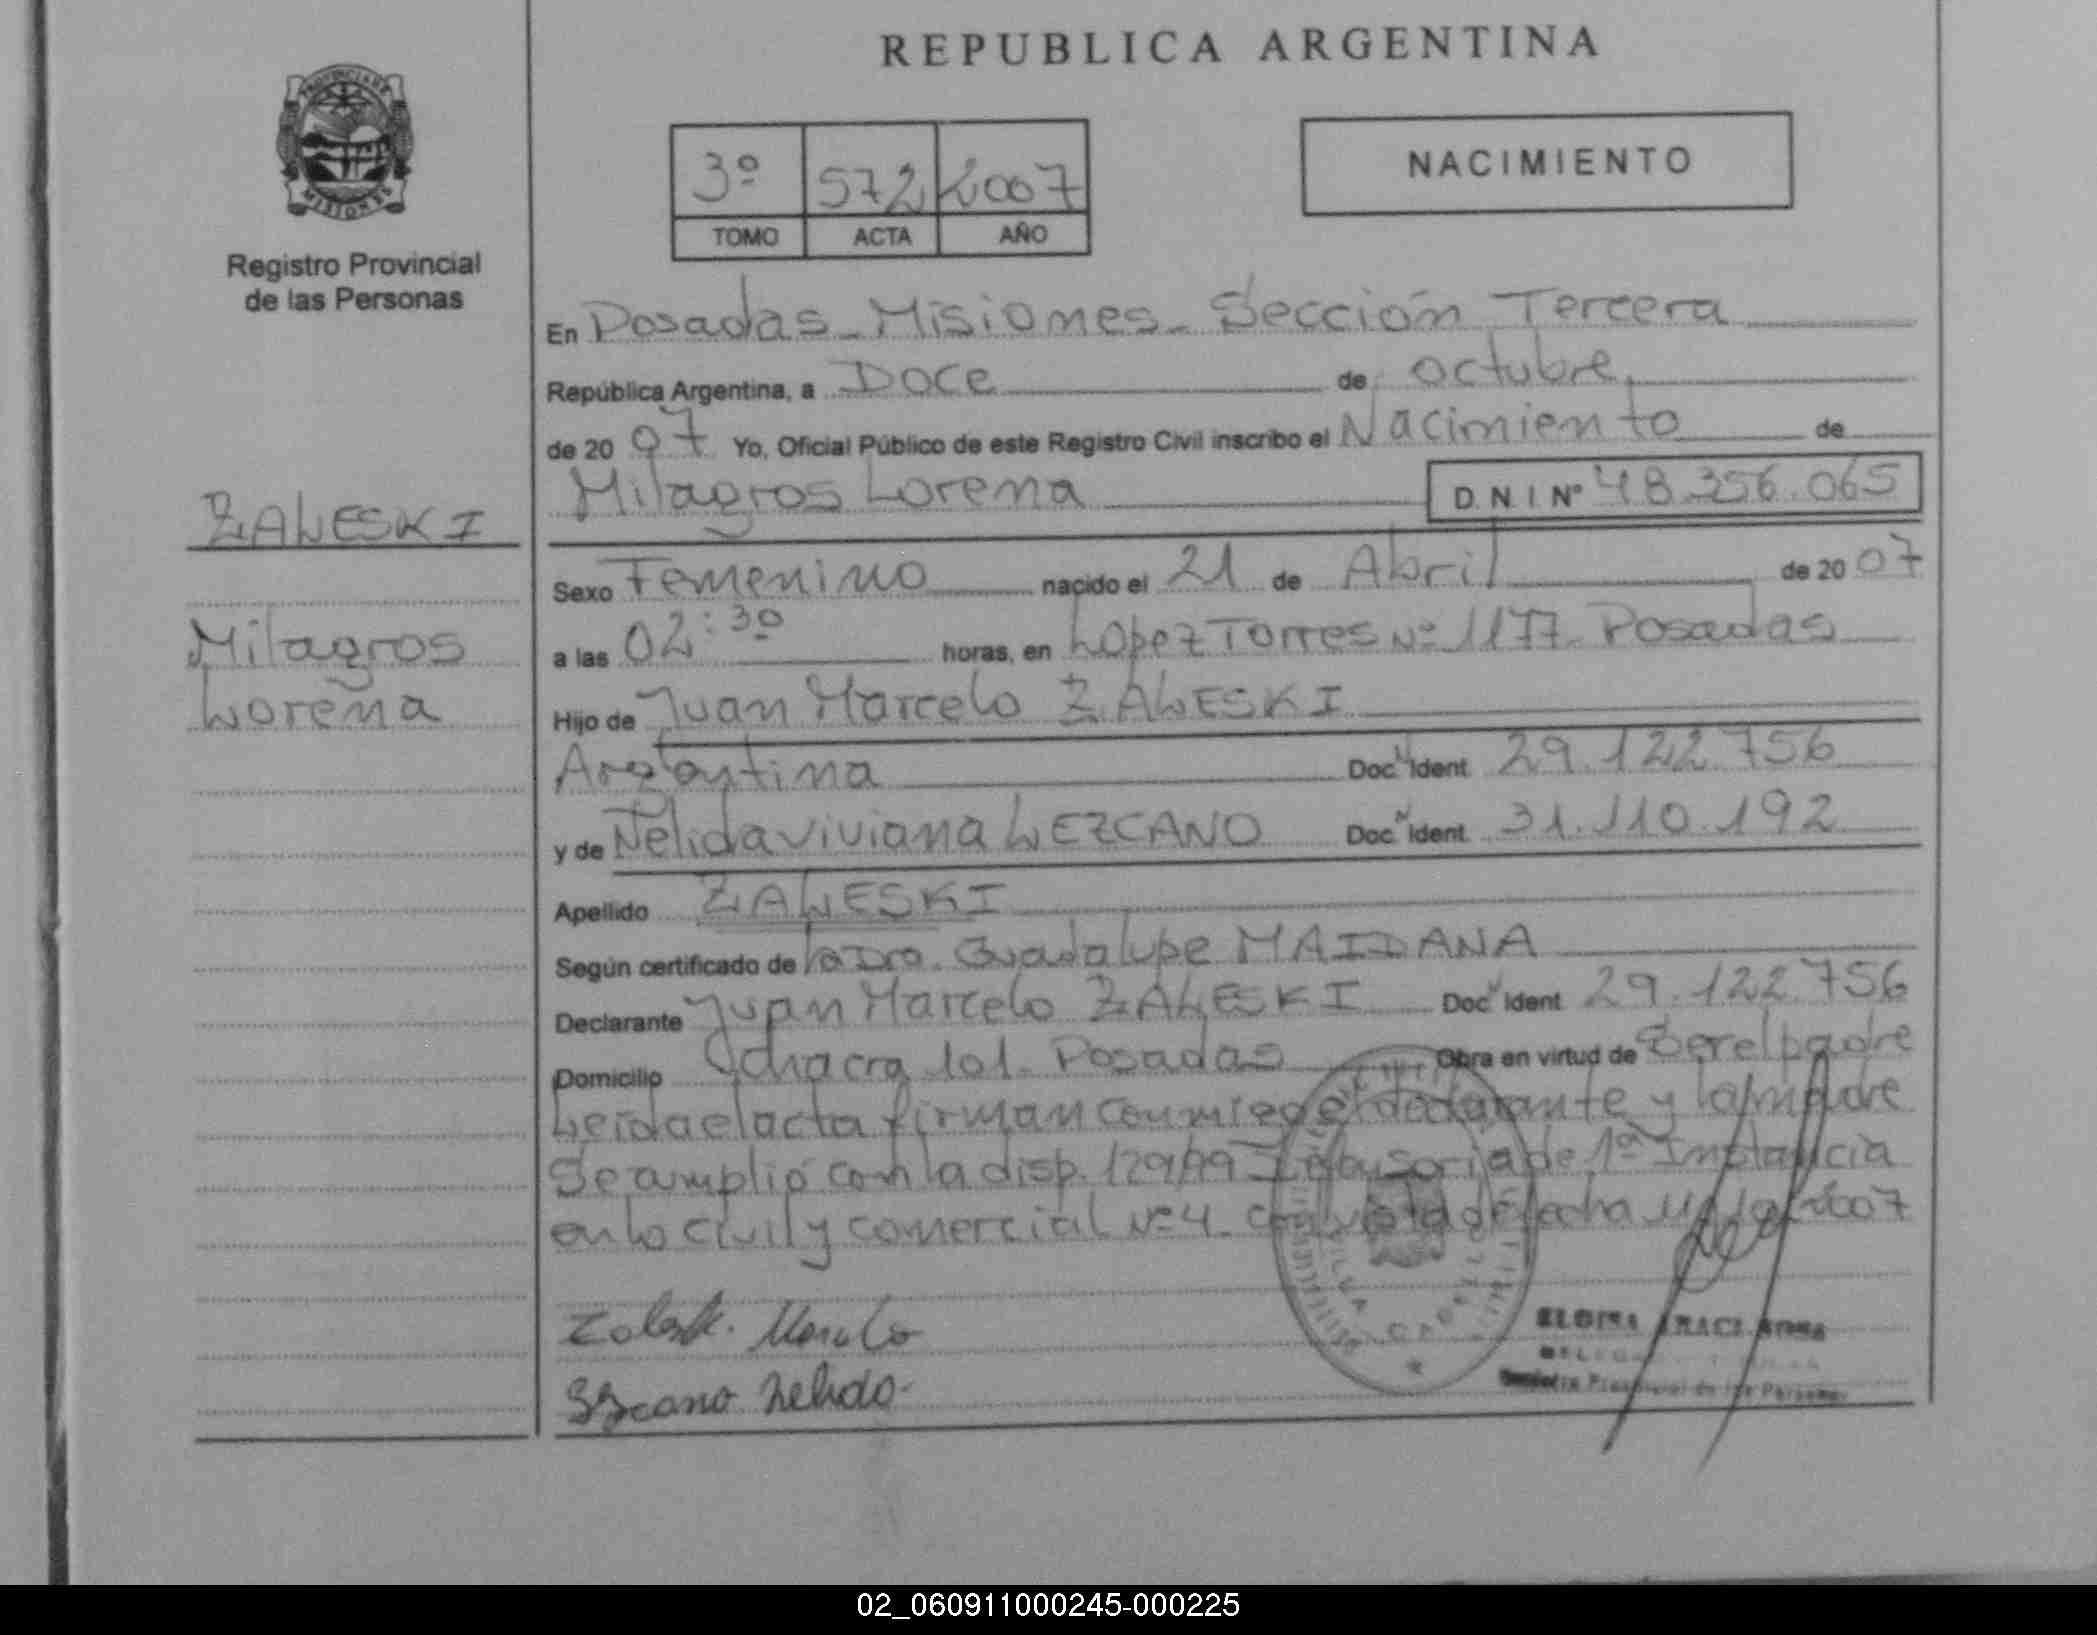 REPUBLICA ARGENTINA
PROVINCIA DE
MISIONES
Registro Provincial
de las Personas
3º 572 2007
TOMO ACTA AÑO
NACIMIENTO
En Posadas Misiones Sección Tercera
República Argentina, a Doce de octubre
de 2007 Yo, Oficial Público de este Registro Civil inscribo el Nacimiento de
Milagros Lorena D.N.I Nº 48.356.065
ZALESKI
Milagros
Lorena
Sexo Femenino nacido el 21 de Abril de 2007
a las 02:30 horas, en Lopez Torres Nº 1177 Posadas
Hijo de Juan Marcelo ZALESKI
Argentina Doc Ident 29.122.756
y de Nelida Viviana LEZCANO Doc Ident 31.110.192
Apellido ZALESKI
Según certificado de la Dra. Guadalupe MAIDANA
Declarante Juan Marcelo ZALESKI Doc Ident 29.122.756
Domicilio Chacra 101 Posadas Obra en virtud de Ser el padre
Leida el acta firman conmigo el declarante y la madre
Se amplió con la disp. 1291/99 de 1ª Instancia
en lo civil y comercial Nº 4 de fecha 2007
Lezcano Nelida
02_060911000245-000225